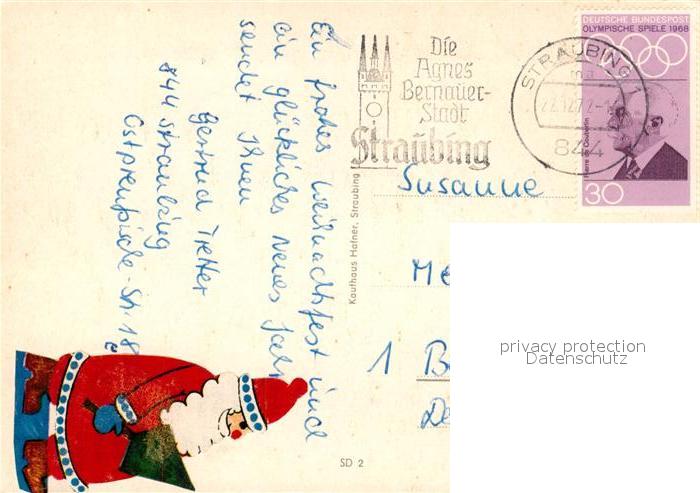 Ein frohes Weihnachtsfest und
ein glückliches neues Jahr
sendet Ihnen
Gertrud Tretter
844 Straubing
Ostpreußische-Str. 18
Die
Agnes
Bernauer-
Stadt
Straubing
STRAUBING 1
844
DEUTSCHE BUNDESPOST
OLYMPISCHE SPIELE 1968
Pierre de Coubertin
30
Kaufhaus Hafner, Straubing
Susanne
Me
1 B
De
SD 2
privacy protection
Datenschutz